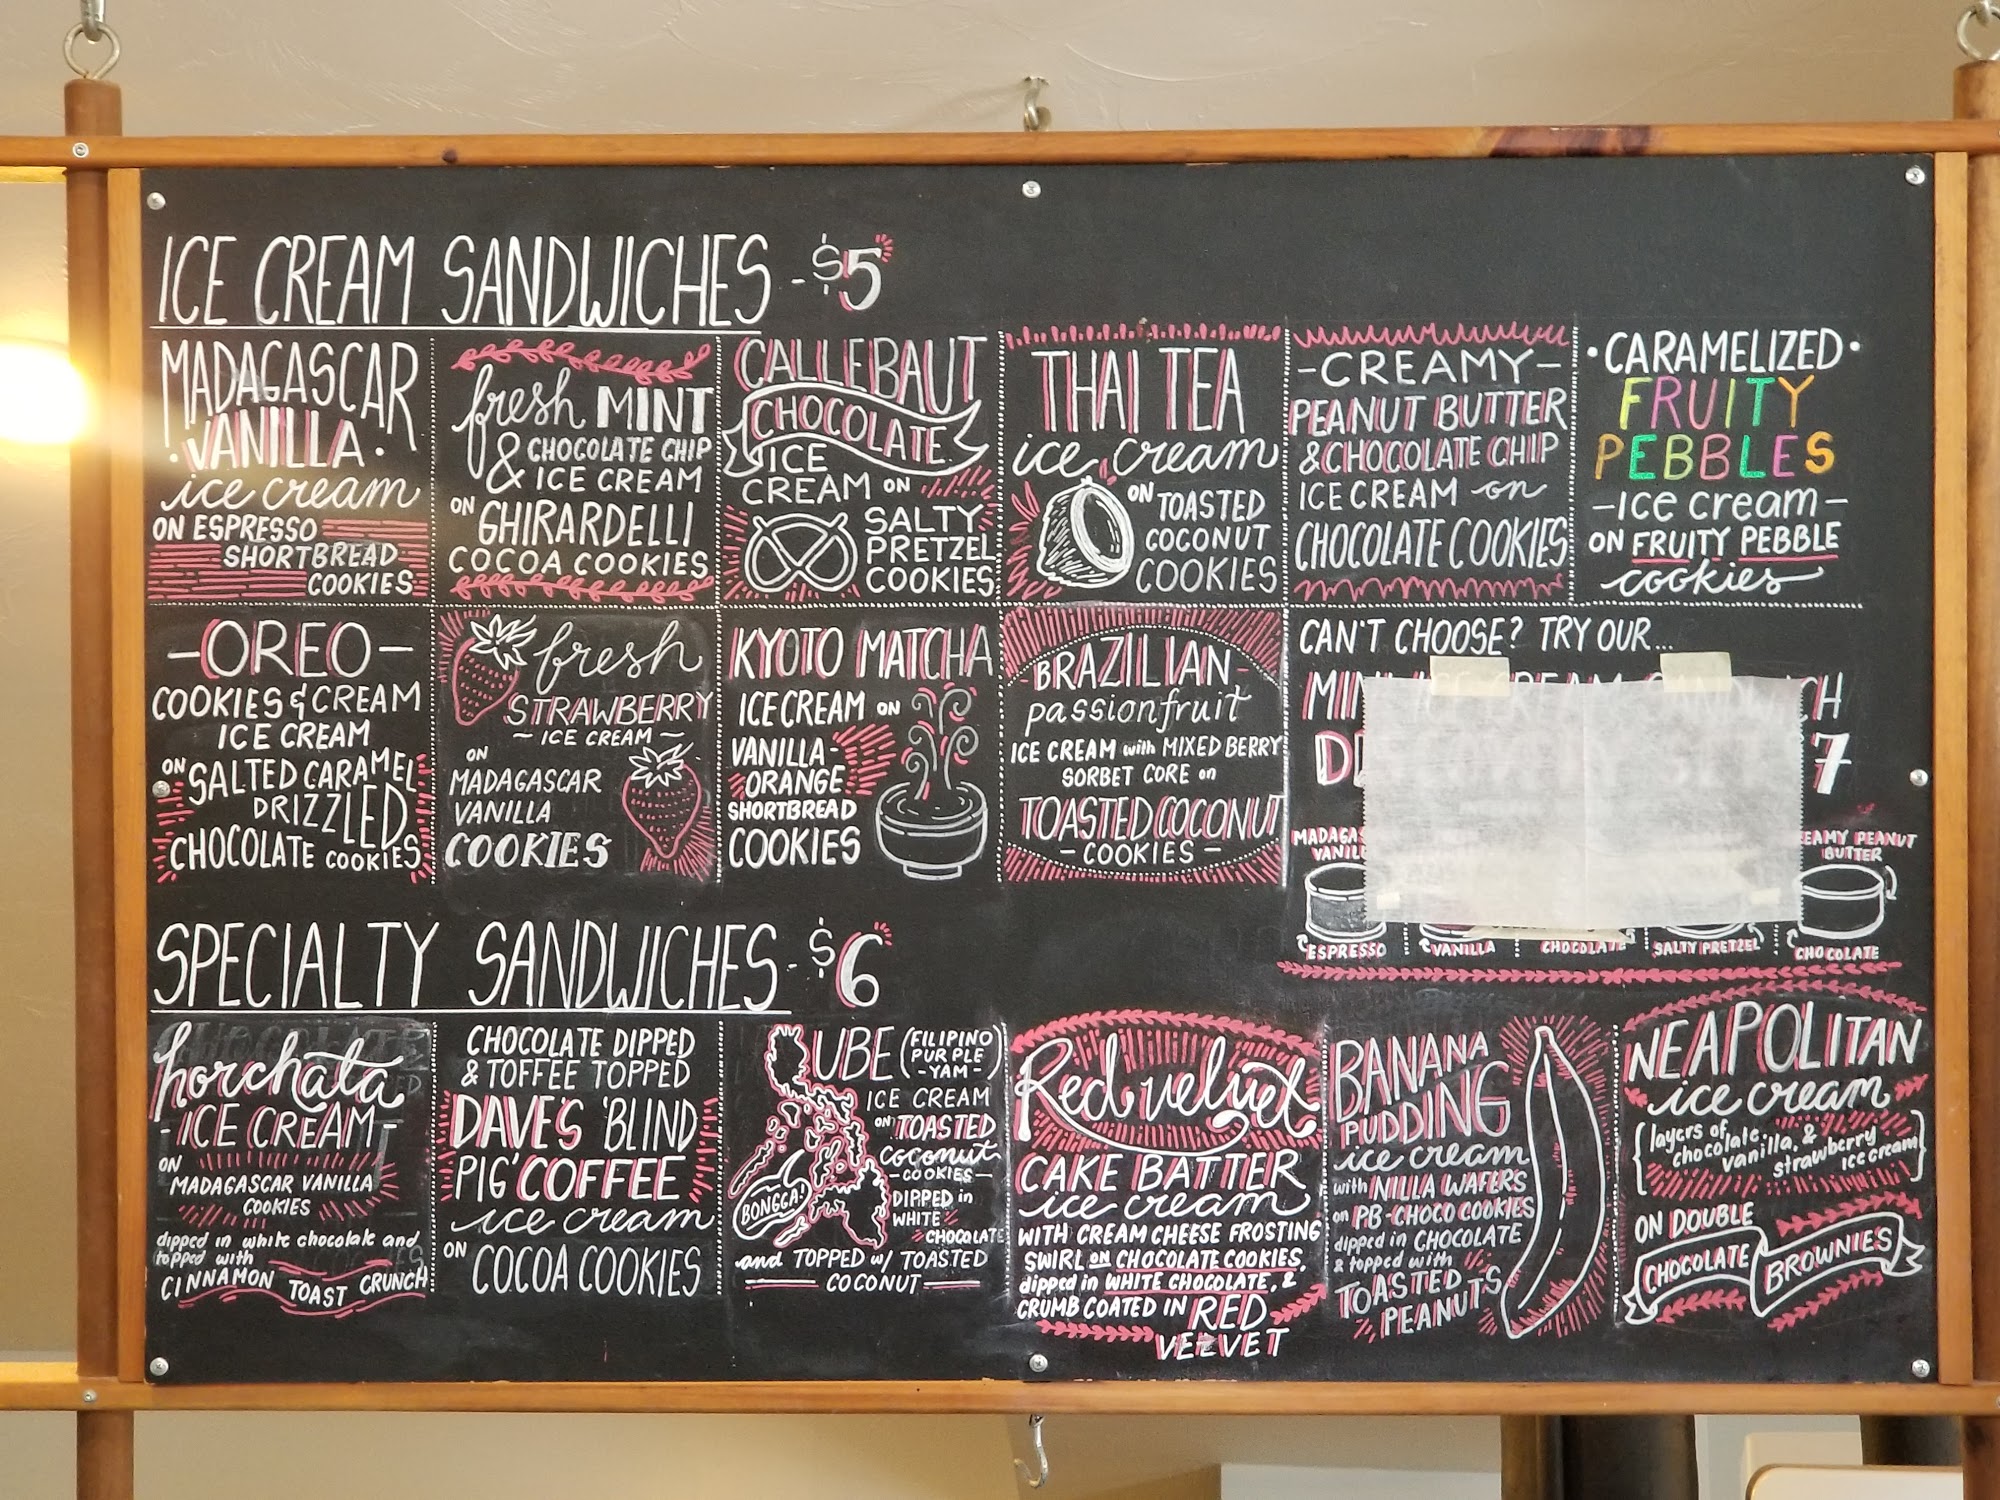 ICE CREAM SANDWICHES - $5
MADAGASCAR
·VANILLA·
ice cream
ON ESPRESSO
SHORTBREAD
COOKIES
fresh MINT
& CHOCOLATE CHIP
ICE CREAM
ON
GHIRARDELLI
COCOA COOKIES
CALLEBAUT
CHOCOLATE
ICE
CREAM ON
SALTY
PRETZEL
COOKIES
THAI TEA
ice cream
ON TOASTED
COCONUT
COOKIES
-CREAMY-
PEANUT BUTTER
& CHOCOLATE CHIP
ICE CREAM on
CHOCOLATE COOKIES
·CARAMELIZED·
FRUITY
PEBBLES
-ice cream-
ON FRUITY PEBBLE
cookies
-OREO-
COOKIES & CREAM
ICE CREAM
ON SALTED CARAMEL
DRIZZLED
CHOCOLATE COOKIES
fresh
STRAWBERRY
~ICE CREAM~
ON
MADAGASCAR
VANILLA
COOKIES
KYOTO MATCHA
ICE CREAM ON
VANILLA-
ORANGE
SHORTBREAD
COOKIES
-BRAZILIAN-
passionfruit
ICE CREAM with MIXED BERRY
SORBET CORE on
TOASTED COCONUT
-COOKIES-
CAN'T CHOOSE? TRY OUR...
7
EAMY PEANUT
BUTTER
ESPRESSO
VANILLA
CHOCOLATE
SALTY PRETZEL
CHOCOLATE
SPECIALTY SANDWICHES - $6
horchata
-ICE CREAM-
ON
MADAGASCAR VANILLA
COOKIES
dipped in white chocolate and
topped with
CINNAMON TOAST CRUNCH
CHOCOLATE DIPPED
& TOFFEE TOPPED
DAVE'S 'BLIND
PIG' COFFEE
ice cream
ON COCOA COOKIES
UBE (FILIPINO
PURPLE
-YAM-)
ICE CREAM
ON TOASTED
coconut
-COOKIES-
DIPPED in
WHITE
CHOCOLATE
BONGGA!
and TOPPED w/ TOASTED
COCONUT
Red velvet
CAKE BATTER
ice cream
WITH CREAM CHEESE FROSTING
SWIRL on CHOCOLATE COOKIES,
dipped in WHITE CHOCOLATE, &
CRUMB COATED IN RED
VELVET
BANANA
PUDDING
ice cream
with NILLA WAFERS
on PB-CHOCO COOKIES
dipped in CHOCOLATE
& topped with
TOASTED
PEANUTS
NEAPOLITAN
ice cream
{layers of
chocolate,
vanilla, &
strawberry
ice cream}
ON DOUBLE
CHOCOLATE
BROWNIES